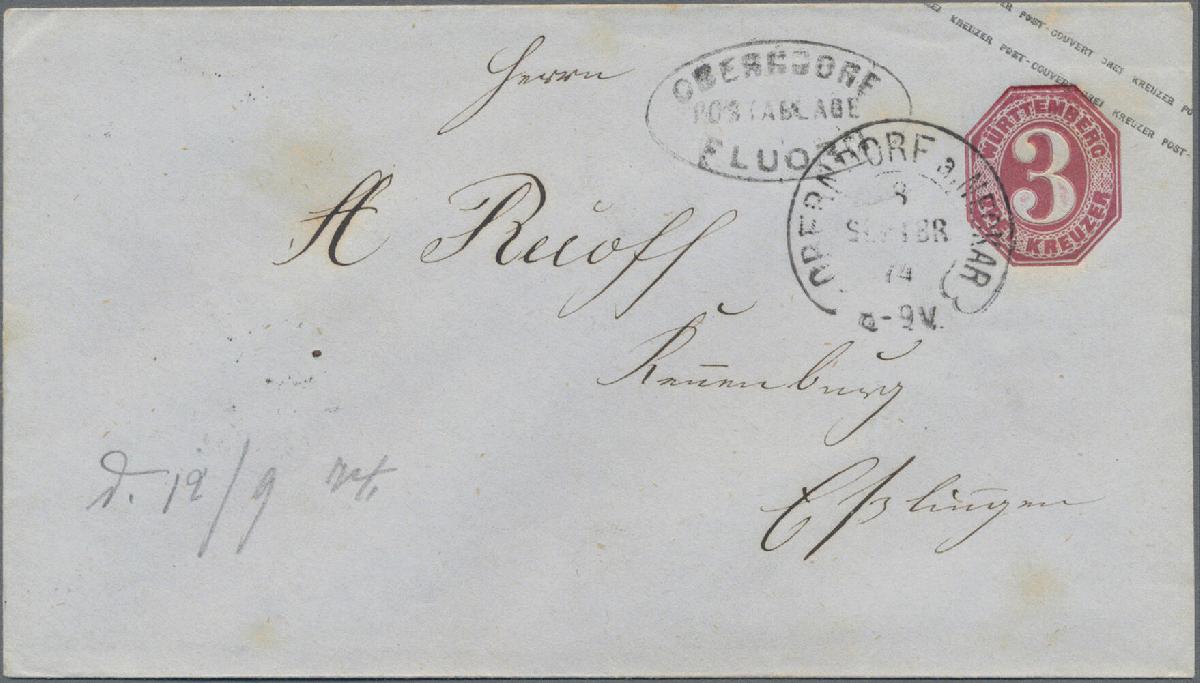 ER POST-COUVERT DREI KREUZER PO
EI KREUZER POST-COUVERT DREI KREUZER POST-
WÜRTTEMBERG
3
KREUZER
OBERNDORF
POSTABLAGE
FLUORN
OBERNDORF a. NECKAR
8
SEPTBR
74
8-9V.
Herrn
A Rueoff
Kennenburg
Eßlingen
d. 12/9